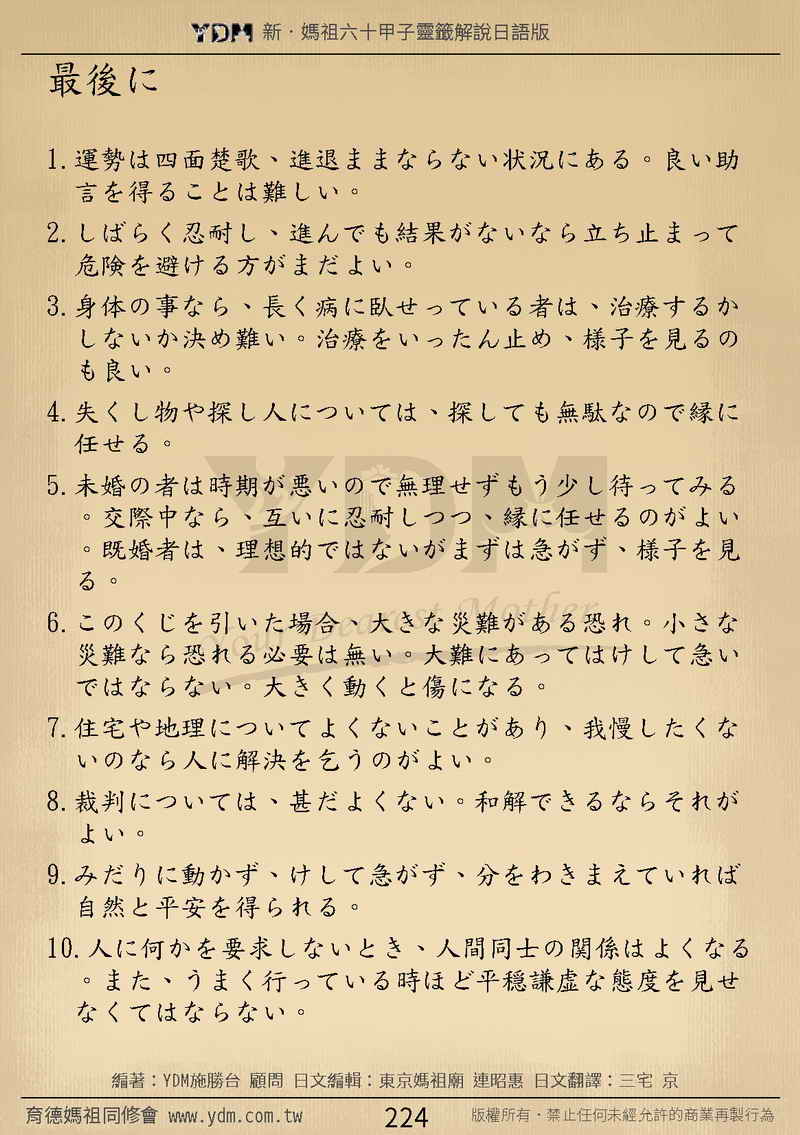 YDM 新・媽祖六十甲子靈籤解說日語版
最後に
1. 運勢は四面楚歌、進退ままならない状況にある。良い助
言を得ることは難しい。
2. しばらく忍耐し、進んでも結果がないなら立ち止まって
危険を避ける方がまだよい。
3. 身体の事なら、長く病に臥せっている者は、治療するか
しないか決め難い。治療をいったん止め、様子を見るの
も良い。
4. 失くし物や探し人については、探しても無駄なので縁に
任せる。
5. 未婚の者は時期が悪いので無理せずもう少し待ってみる
。交際中なら、互いに忍耐しつつ、縁に任せるのがよい
。既婚者は、理想的ではないがまずは急がず、様子を見
る。
6. このくじを引いた場合、大きな災難がある恐れ。小さな
災難なら恐れる必要は無い。大難にあってはけして急い
ではならない。大きく動くと傷になる。
7. 住宅や地理についてよくないことがあり、我慢したくな
いのなら人に解決を乞うのがよい。
8. 裁判については、甚だよくない。和解できるならそれが
よい。
9. みだりに動かず、けして急がず、分をわきまえていれば
自然と平安を得られる。
10. 人に何かを要求しないとき、人間同士の関係はよくなる
。また、うまく行っている時ほど平穏謙虚な態度を見せ
なくてはならない。
YDM
Your Dearest Mother
編著：YDM施勝台 顧問 日文編輯：東京媽祖廟 連昭惠 日文翻譯：三宅 京
育德媽祖同修會 www.ydm.com.tw 224 版權所有・禁止任何未經允許的商業再製行為